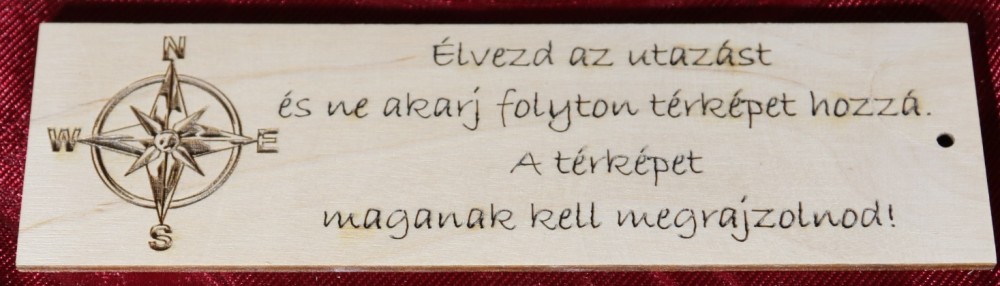 N
W
E
S
Élvezd az utazást
és ne akarj folyton térképet hozzá.
A térképet
maganak kell megrajzolnod!